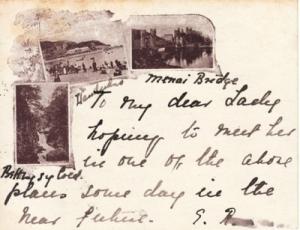 Menai Bridge
Llandudno
To my dear Lady
hoping to meet her
in one of the above
Bettws y Coed.
places some day in the
near future. E. R